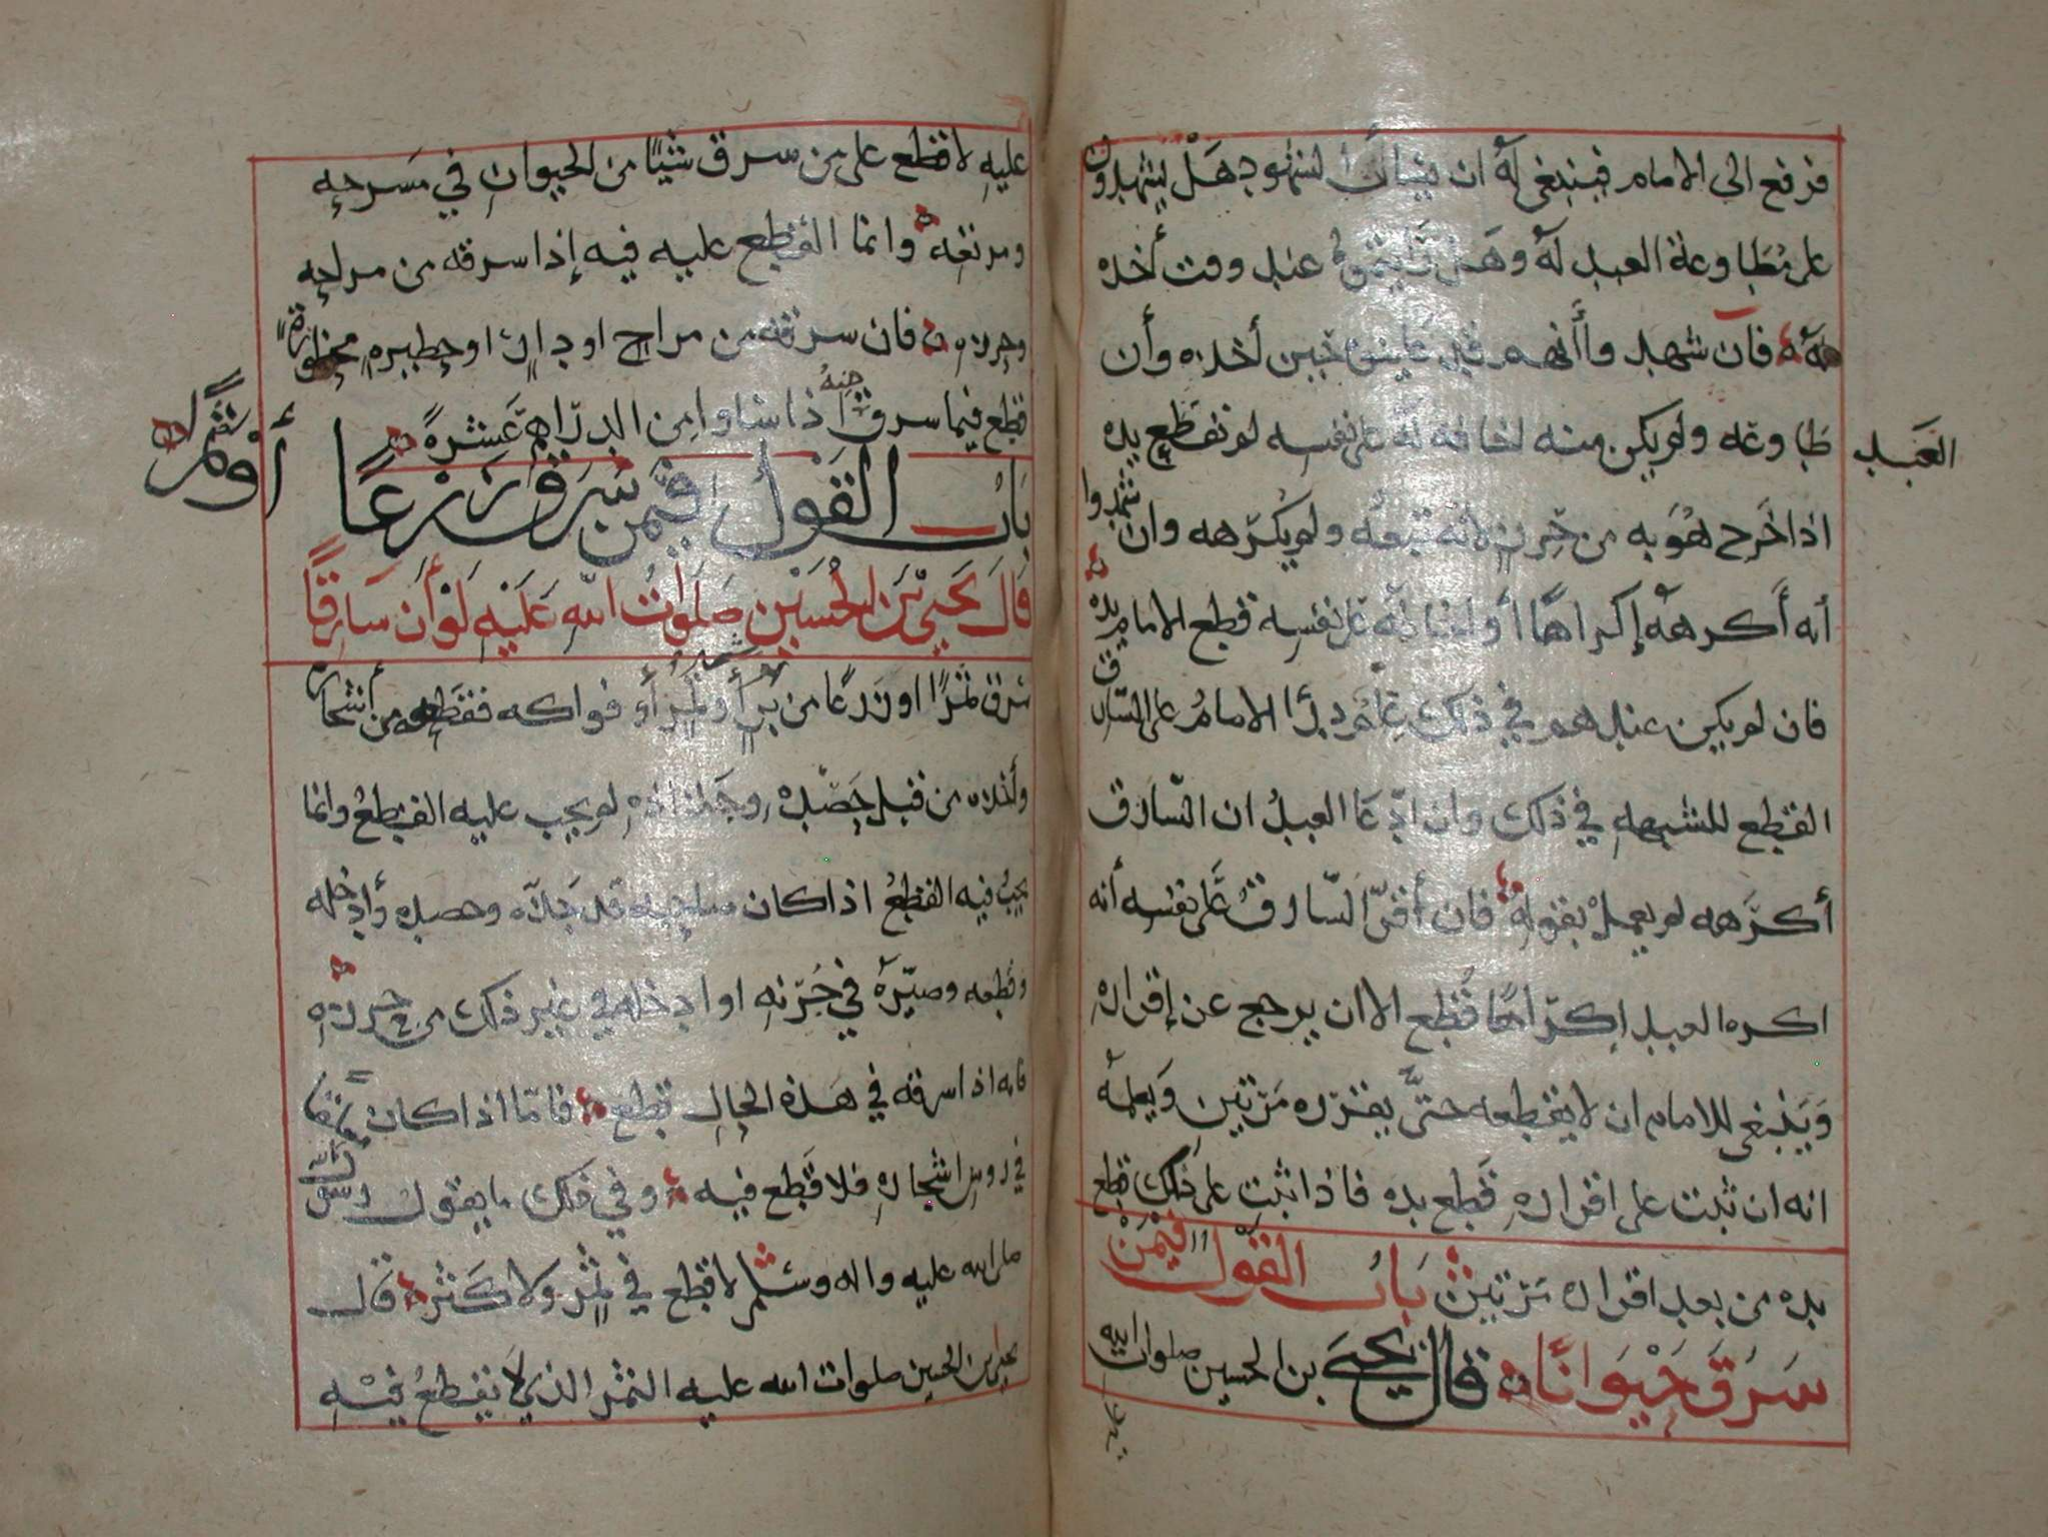 فرفع الى الامام فينبغي له ان يسأل الشهود هل يشهدون
على مطاوعة العبد له وهل عند وقت أخذه
له فان شهدوا أنهم حين أخذه وأن
العبد
طاوعه ولم يكن منه لخافه له على نفسه لم تقطع يده
اذا خرج هو به من حرزه لأنه تبعه ولم يكرهه وان شهدوا
أنه أكرهه إكراها أو على نفسه قطع الامام يده
فان لم يكن عندهم في ذلك علم درأ الامام على السارق
القطع للشبهه في ذلك وان ادعا العبد ان السارق
أكرهه لم يعمل بقوله فان أقر السارق على نفسه أنه
اكره العبد إكراها قطع الا ان يرجع عن إقراره
وينبغي للامام ان لا يقطعه حتى يقرره مرتين ويعلمه
انه ان ثبت على اقراره قطع يده فاذا ثبت على ذلك قطع
يده من بعد اقراره مرتين باب القول فيمن
سرق حيوانا قال يحيى بن الحسين صلوات الله
عليه لا قطع على من سرق شيئا من الحيوان في مسرحه
ومرتعه وانما القطع عليه فيه إذا سرقه من مراحه
وحرزه فان سرقه من مراح او دار او حظيره محظورة
قطع فيما سرق منه اذا ساوا من الدراهم عشره
باب القول فيمن سرق زرعا
أو ثمرا
قال يحيى بن الحسين صلوات الله عليه لو أن سارقا
سرق ثمرا او زرعا من بر أو ثمر أو فواكه فقطعه من أشجاره
وأخذه من قبل حصده وجذاذه لم يجب عليه القطع وانما
يجب فيه القطع اذا كان صاحبه قد جذه وحصده وأدخله
وقطعه وصيره في جرنه او ادخله في غير ذلك من حرزه
فانه اذا سرقه في هذه الحال قطع فاما اذا كان
في روس اشجاره فلا قطع فيه وفي ذلك ما يقول رسول الله
صلى الله عليه واله وسلم لا قطع في ثمر ولا كثر قال
يحيى بن الحسين صلوات الله عليه الثمر الذي لا يقطع فيه